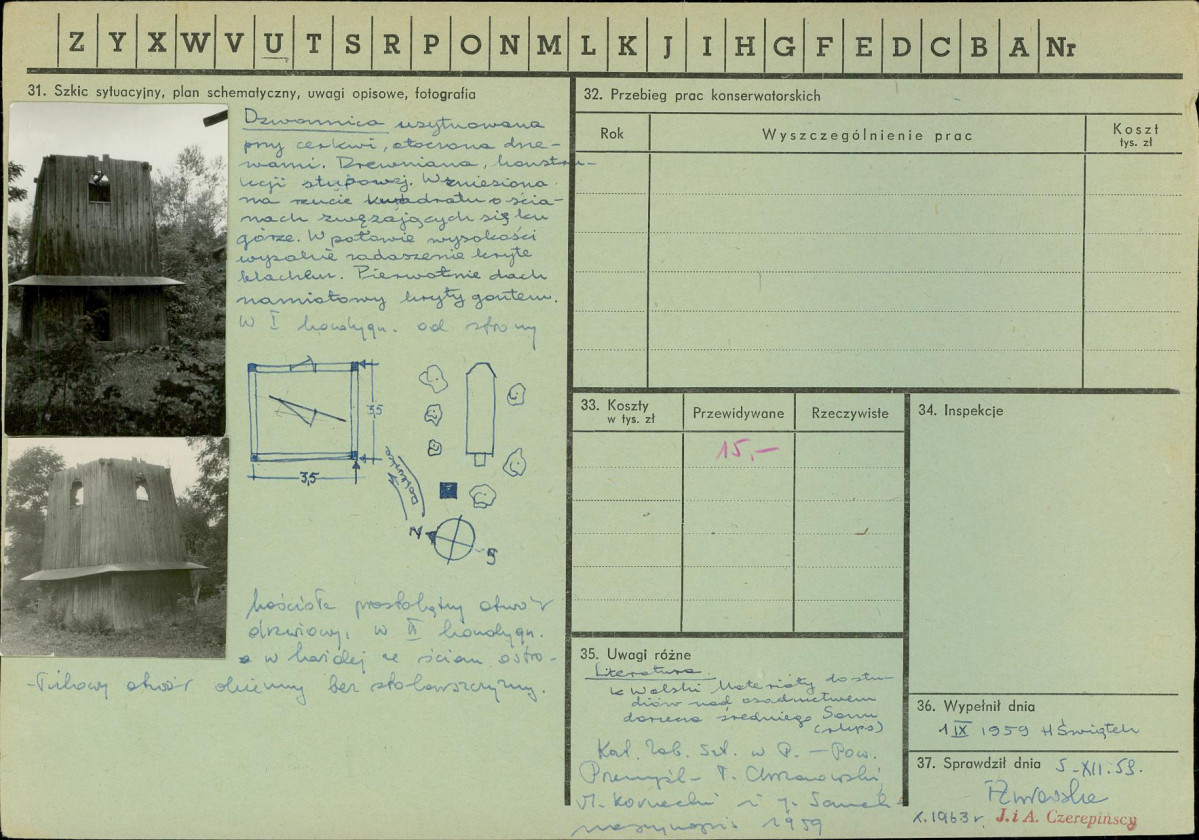 Z Y X W V U T S R P O N M L K J I H G F E D C B A Nr
31. Szkic sytuacyjny, plan schematyczny, uwagi opisowe, fotografia
Dzwonnica usytuowana
przy cerkwi, otoczona drze-
wami. Drewniana, konstru-
kcji słupowej. Wzniesiona
na rzucie kwadratu o ścia-
nach zwężających się ku
górze. W połowie wysokości
wydatne zadaszenie kryte
blachą. Pierwotnie dach
namiotowy kryty gontem.
W I kondygn. od strony
3,5
3,5
N
S
kościoła prostokątny otwór
drzwiowy, w II kondygn.
w każdej ze ścian ostro-
łukowy otwór okienny bez stolarszczyzny.
32. Przebieg prac konserwatorskich
Rok
Wyszczególnienie prac
Koszt
tys. zł
33. Koszty
w tys. zł
Przewidywane
Rzeczywiste
15,-
34. Inspekcje
35. Uwagi różne
Literatura
Wolski Materiały do stu-
diów nad osadnictwem
dorzecza średniego Sanu
Kat. Zab. Szt. w P. - Pow.
Przemyśl - T. Chrzanowski,
M. Kornecki i J. Samek
maszynopis 1959
36. Wypełnił dnia
1 IX 1959 H Świątek
37. Sprawdził dnia 5-XII.59.
X.1963 r. J. i A. Czerepińscy